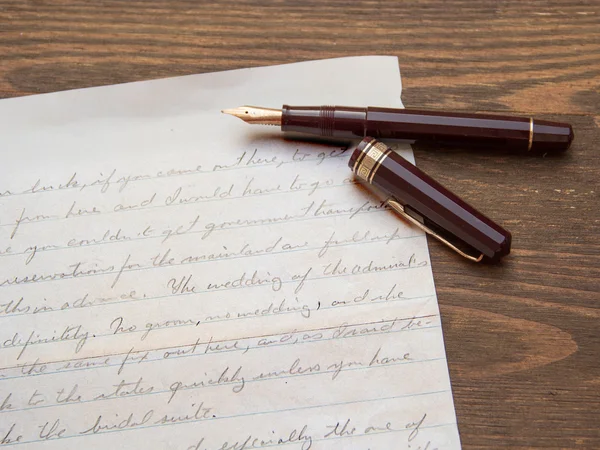 luck, if you came out here, to get
from here and I would have to go a
you couldn't get government transporta
reservations for the mainland are full up
in advance. The wedding of the admirals
definitely. No groom, no wedding, and she
the same fix out here, and, as I said be-
to the states quickly unless you have
the bridal suite.
especially the one of